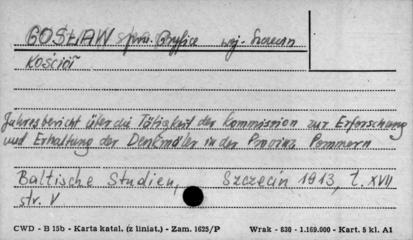 GOSŁAW pow. Gryfice woj. Szczecin
Kościół
Jahresbericht über die Tätigkeit der Kommission zur Erforschung
und Erhaltung der Denkmäler in der Provinz Pommern
Baltische Studien, Szczecin 1913, t. XVII
str. V
CWD - B 15b - Karta katal. (z liniat.) - Zam. 1625/P Wrak - 830 - 1.169.000 - Kart. 5 kl. A1